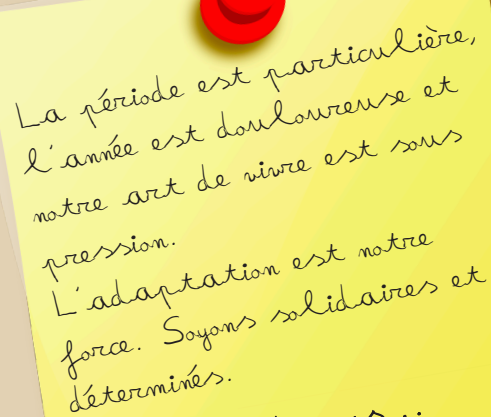 La période est particulière,
l'année est douloureuse et
notre art de vivre est sous
pression.
L'adaptation est notre
force. Soyons solidaires et
déterminés.